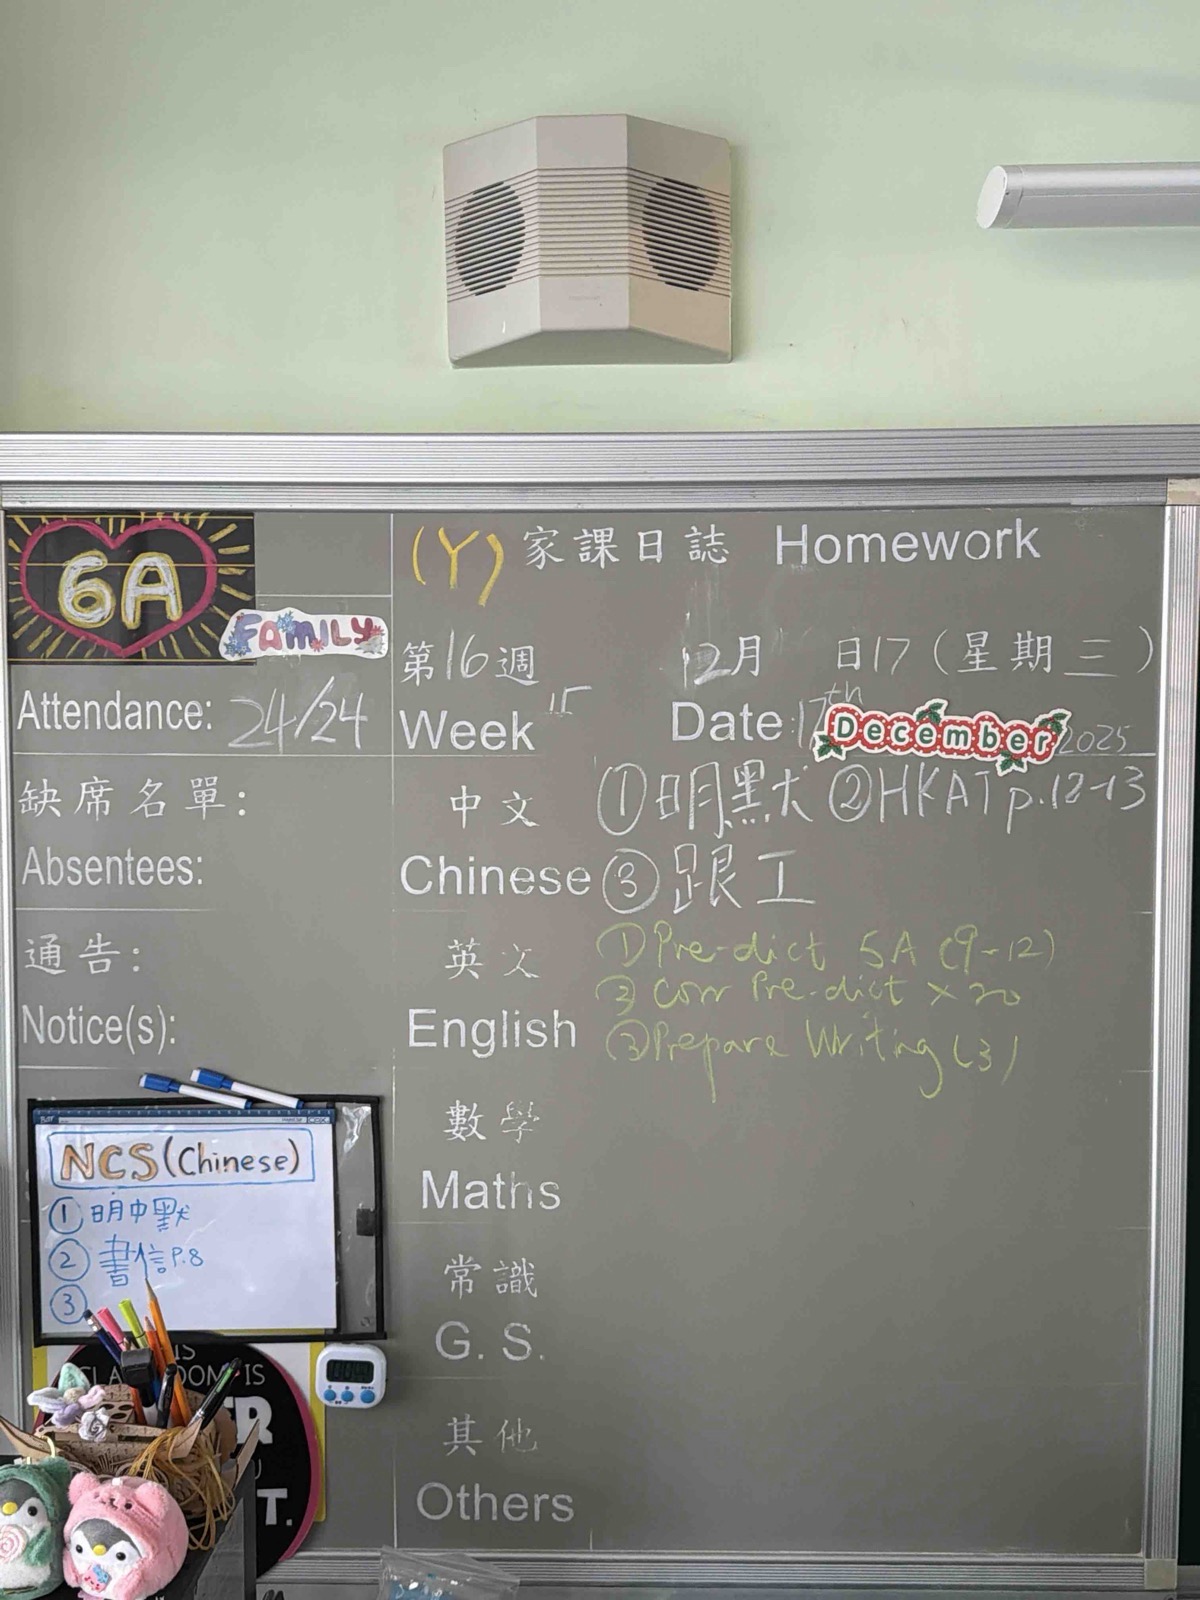 6A
FAMILY
Attendance: 24/24
缺席名單:
Absentees:
通告:
Notice(s):
NCS (Chinese)
① 明中默
② 書信P.8
③
(Y) 家課日誌 Homework
第16週 12月 日17(星期三)
Week 15 Date: 17th December 2025
中文 ①明默 ②HKAT p.12-13
Chinese ③跟工
英文 ①Pre-dict 5A (9-12)
② Corr Pre-dict × 20
English ③Prepare Writing (3)
數學
Maths
常識
G. S.
其他
Others
IS
IS
T.